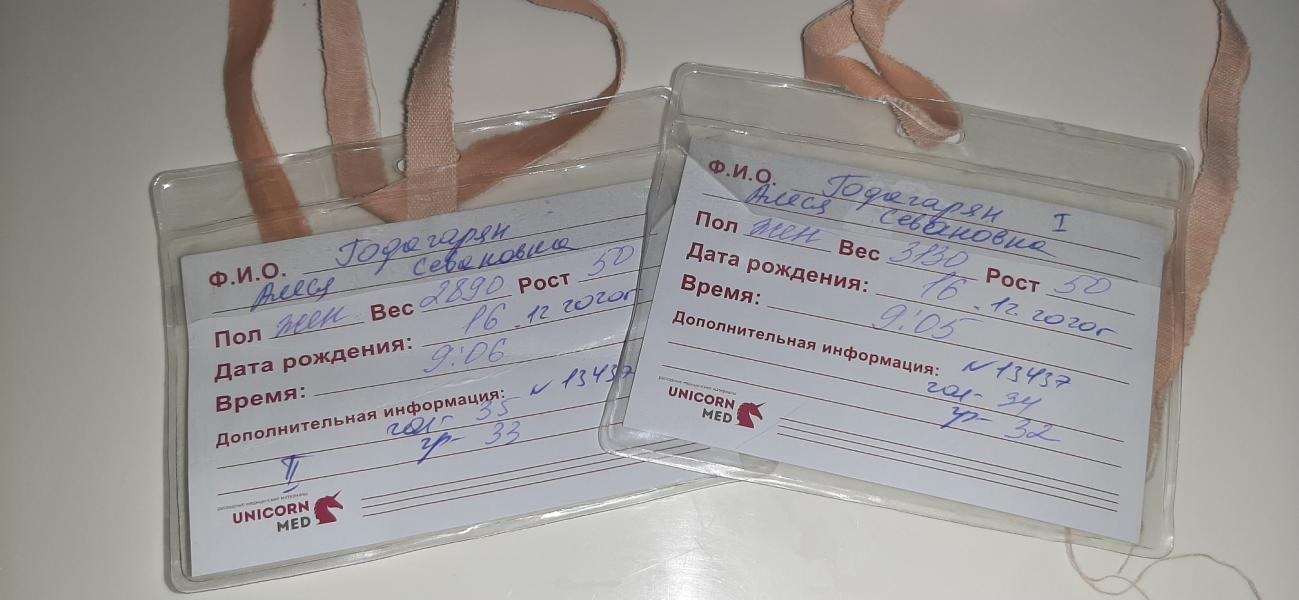 Ф.И.О. Годагарян
Алеся Севановна
Пол жен Вес 2890 Рост 50
Дата рождения: 16.12.2020г
Время: 9:06
Дополнительная информация: N 13437
гол- 35
гр- 33
II
расходные медицинские материалы
UNICORN
MED
Ф.И.О. Годагарян I
Алеся Севановна
Пол жен Вес 3130 Рост 50
Дата рождения: 16.12.2020г
Время: 9:05
Дополнительная информация: N 13437
гол- 34
гр- 32
расходные медицинские материалы
UNICORN
MED